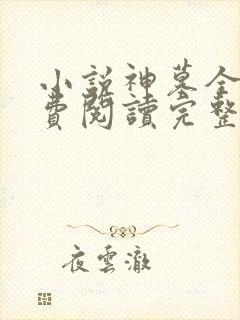 小說神墓全
費閱讀完整
夜雲澈